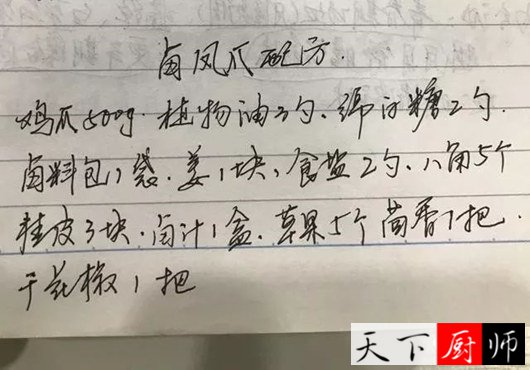 卤凤爪配方.
鸡爪500g.植物油3勺、绵白糖2勺.
卤料包1袋.姜1块、食盐2勺、八角5个
桂皮3块.卤汁1盒.草果5个茴香1把.
干花椒1把
天下厨师